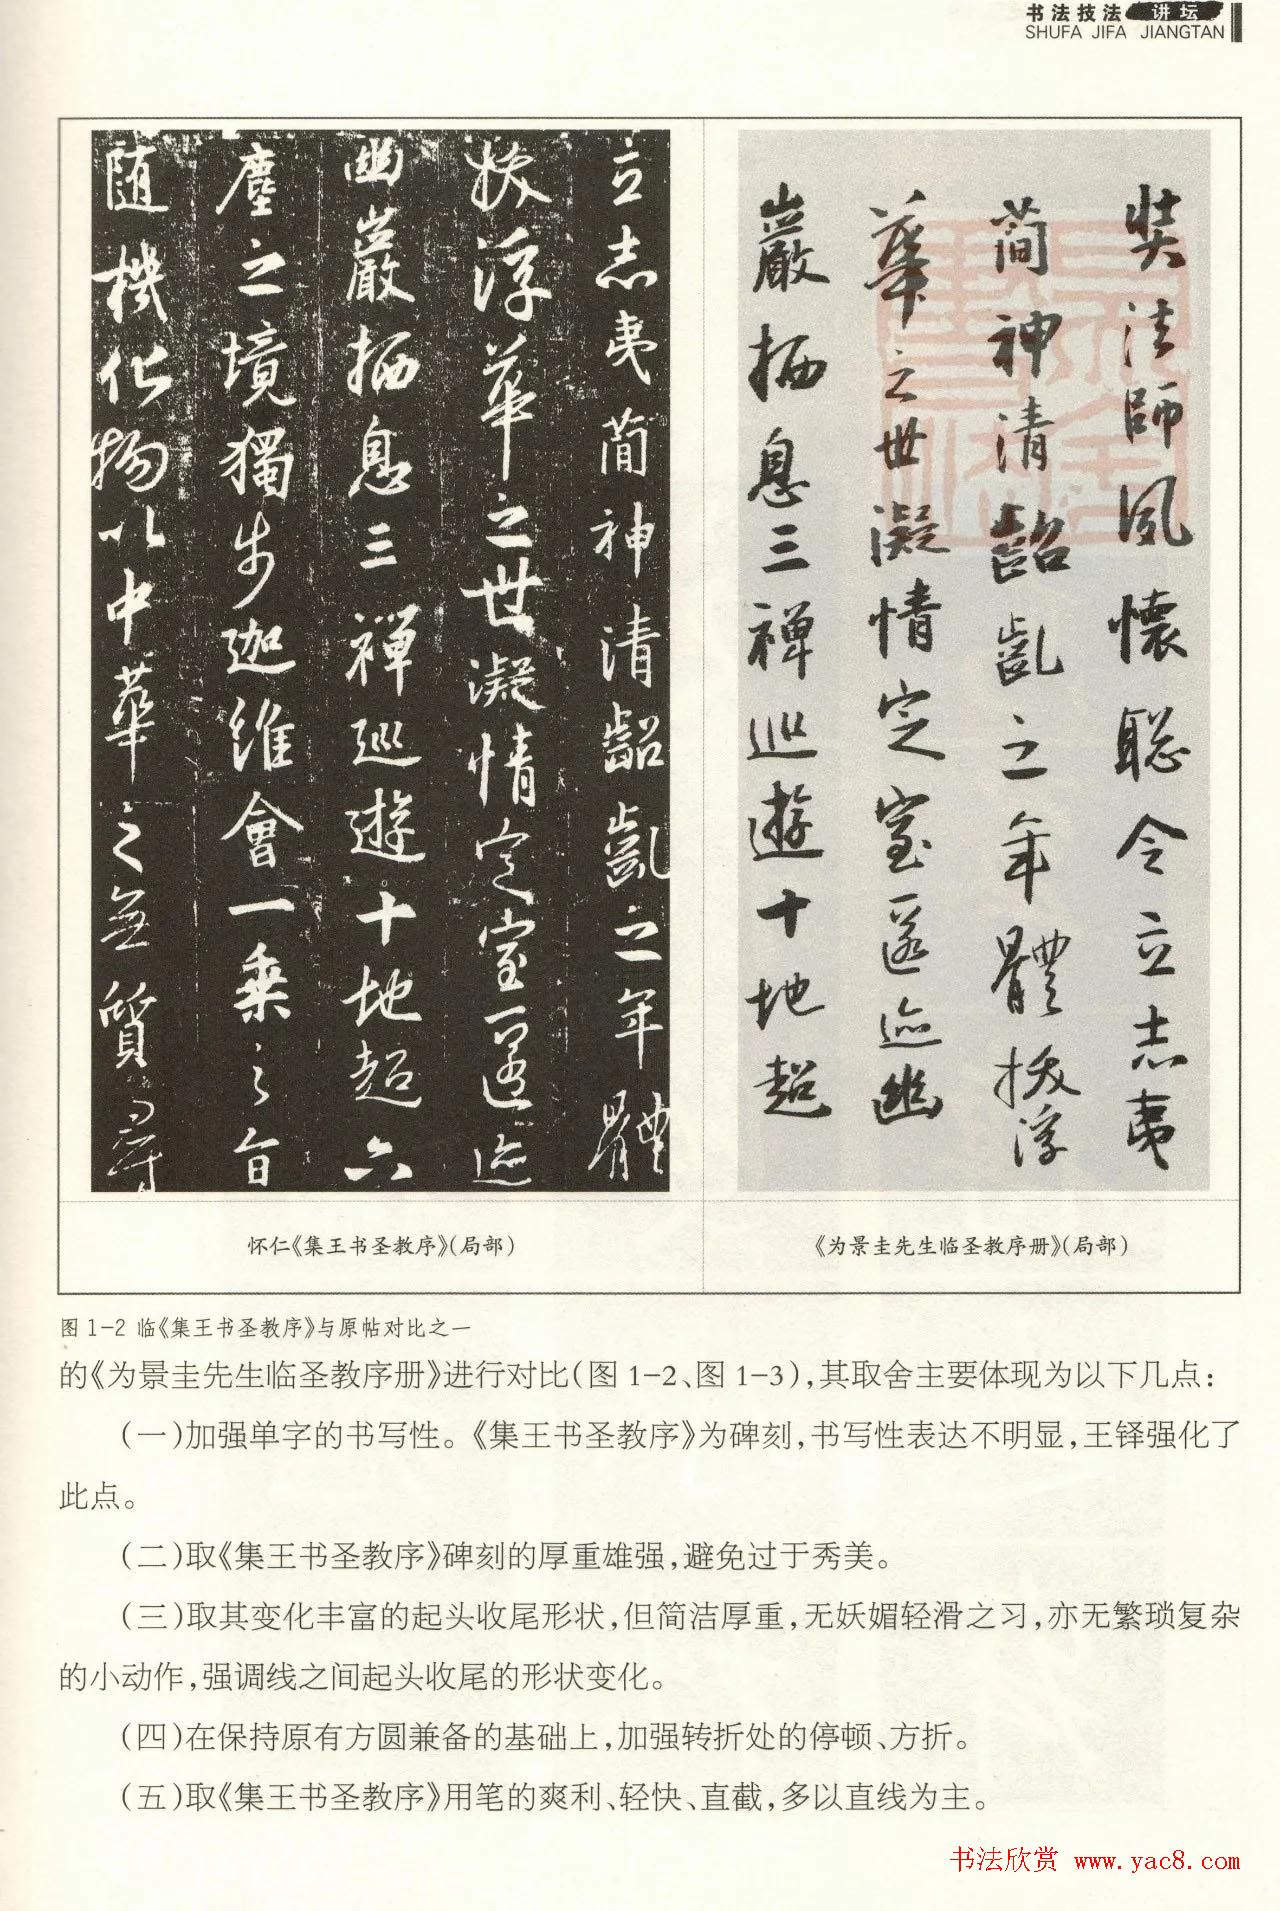 书法技法 讲坛
SHUFA JIFA JIANGTAN
立志夷簡神清齠齔之年體
拔浮華之世凝情定室匿迹
幽巖栖息三禪巡遊十地超六
塵之境獨步迦維會一乘之旨
随機化物以中華之無質尋
奘法師風懷聡令立志夷
簡神清齠齔之年體拔浮
華之世凝情定室匿迹幽
巖栖息三禪巡遊十地超
怀仁《集王书圣教序》(局部)
《为景圭先生临圣教序册》(局部)
图1-2 临《集王书圣教序》与原帖对比之一
的《为景圭先生临圣教序册》进行对比(图1-2、图1-3),其取舍主要体现为以下几点:
(一)加强单字的书写性。《集王书圣教序》为碑刻,书写性表达不明显,王铎强化了
此点。
(二)取《集王书圣教序》碑刻的厚重雄强,避免过于秀美。
(三)取其变化丰富的起头收尾形状,但简洁厚重,无妖媚轻滑之习,亦无繁琐复杂
的小动作,强调线之间起头收尾的形状变化。
(四)在保持原有方圆兼备的基础上,加强转折处的停顿、方折。
(五)取《集王书圣教序》用笔的爽利、轻快、直截,多以直线为主。
书法欣赏 www.yac8.com